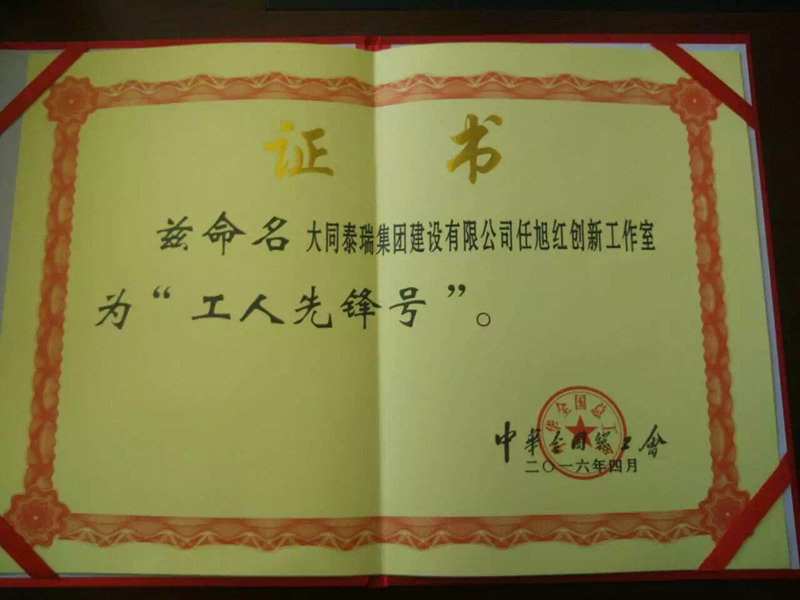 证书
兹命名 大同泰瑞集团建设有限公司任旭红创新工作室
为“工人先锋号”。
中華全国總工會
二〇一六年四月